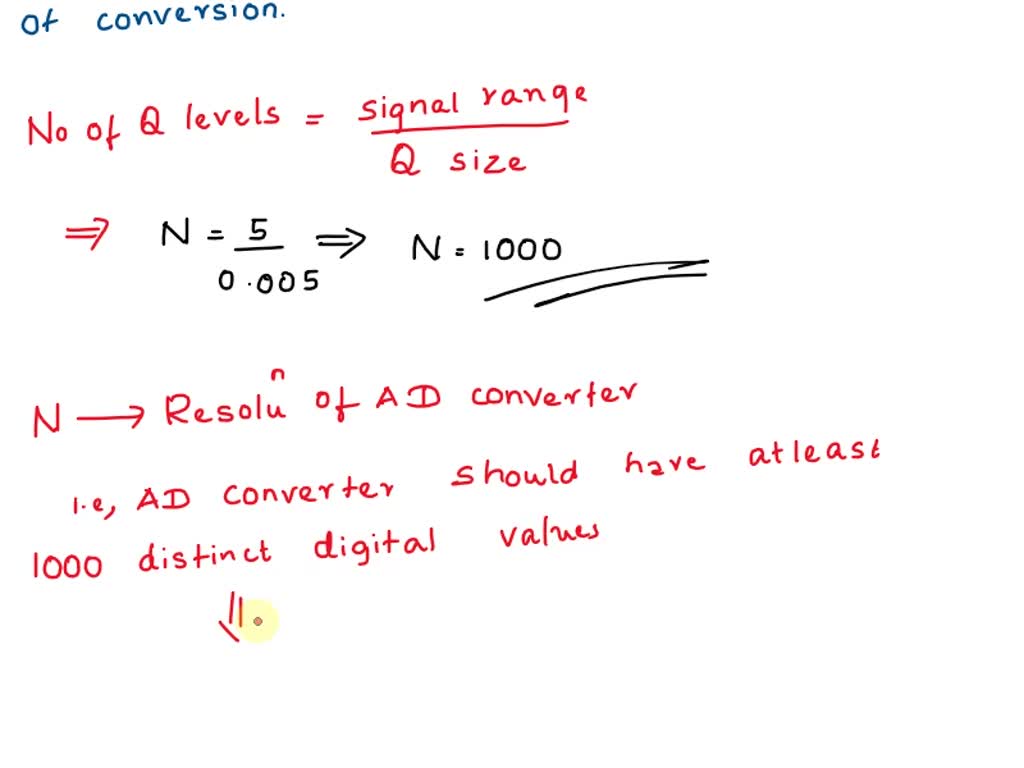 of conversion.
No of Q levels = signal range
Q size
⇒ N = 5 ⇒ N = 1000
0.005
n
N → Resolu of AD converter
i.e, AD converter should have atleast
1000 distinct digital values